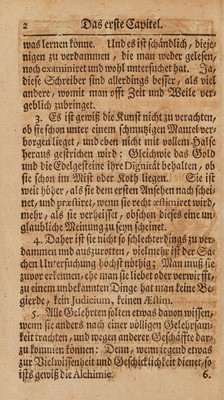 2 Das erste Capitel.
was lernen könne. Und es ist schändlich, dieje-
nigen zu verdammen, die man weder gelesen,
noch examiniret und wohl untersuchet hat. Ja,
diese Schreiber sind allerdings besser, als viel
andere, womit man offt Zeit und Weile ver-
geblich zubringet.
3. Es ist gewiß die Kunst nicht zu verachten,
ob sie schon unter einem schmutzigen Mantel ver-
borgen lieget, und eben nicht mit vollem Halse
heraus gestrichen wird: Gleichwie das Gold
und die Edelgesteine ihre Dignität behalten, ob
sie schon im Mist oder Koth liegen. Sie ist
weit höher, als sie dem ersten Ansehen nach schei-
net, und præstiret, wenn sie recht æstimiret wird,
mehr, als sie verheisset, obschon dieses eine un-
glaubliche Meinung zu seyn scheinet.
4. Daher ist sie nicht so schlechterdings zu ver-
dammen und auszurotten, vielmehr ist der Sa-
chen Untersuchung höchst nöthig: Man muß sie
zuvor erkennen, ehe man sie liebet oder verwirfft,
zu einem unbekannten Dinge hat man keine Be-
gierde, kein Judicium, keinen Æstim.
5. Alle Gelehrten solten etwas davon wissen,
wenn sie anders nach einer völligen Gelehrsam-
keit trachten, und wegen anderer Geschäffte dar-
zu kommen können: Denn, wenn irgend etwas
zur Vielwissenheit und Geschicklichkeit dienet, so
ists gewiß die Alchimie. 6.